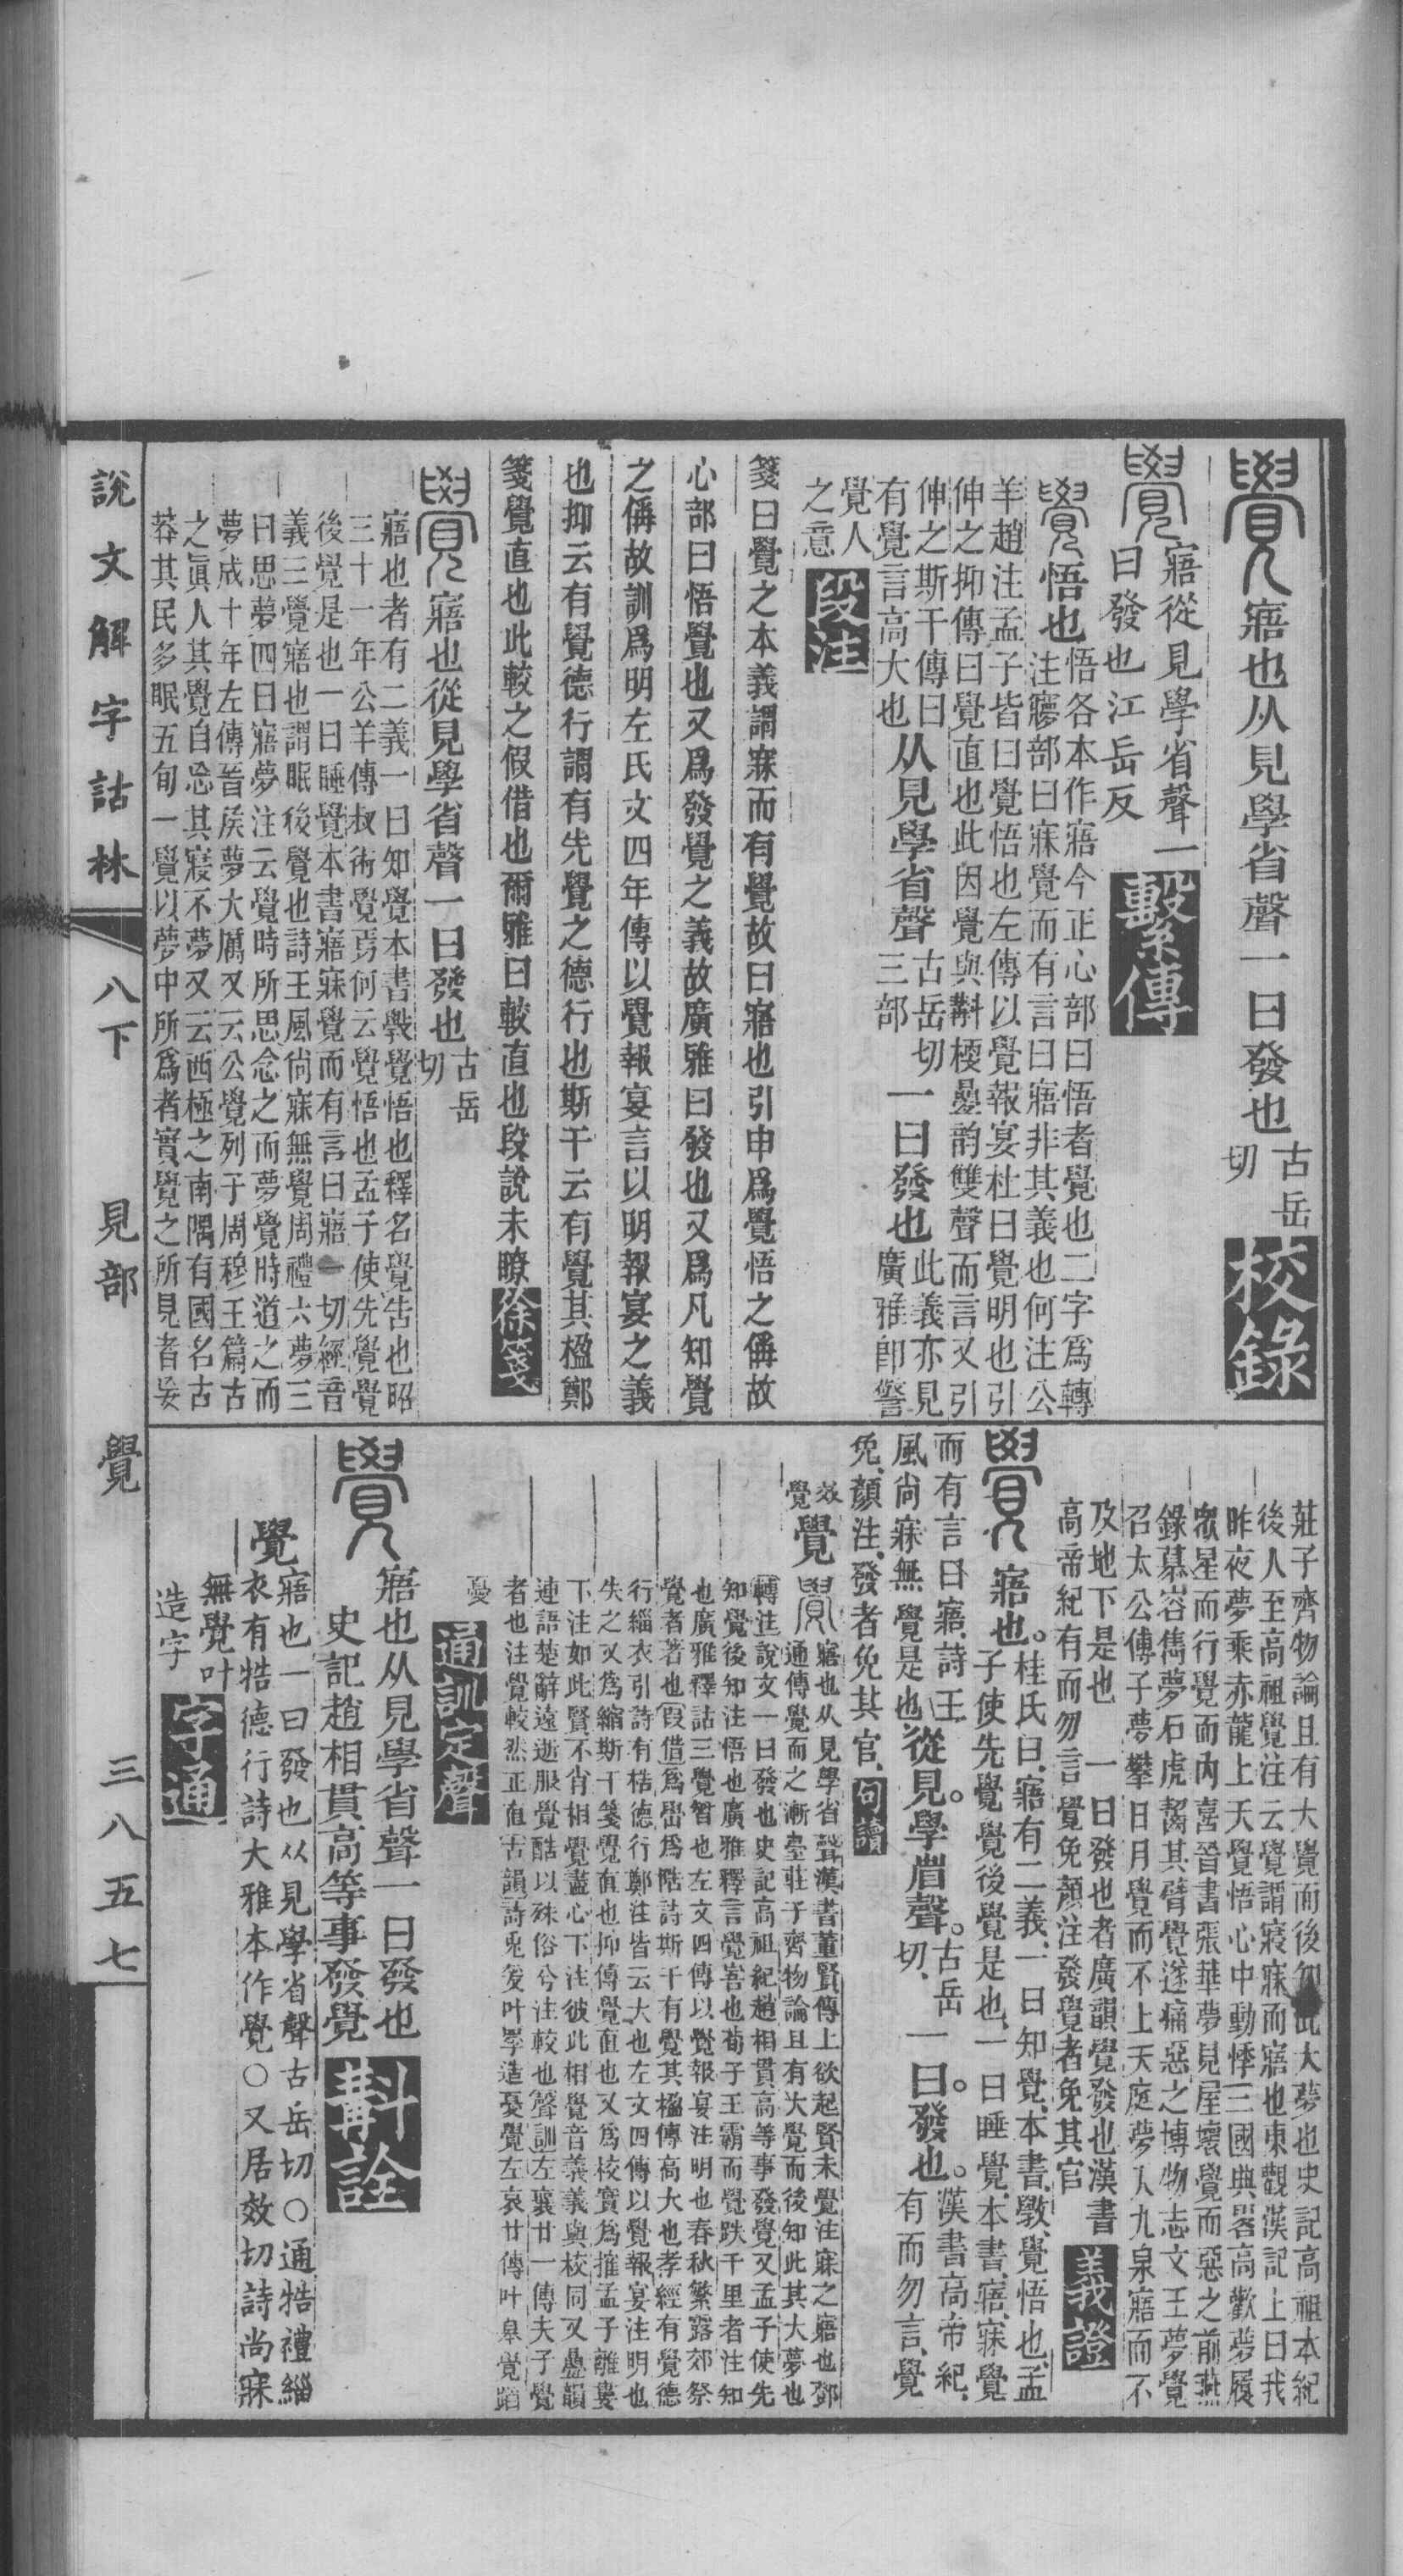 覺寤也从見學省聲一曰發也古岳切校錄
覺寤從見學省聲一
曰發也江岳反繫傳
覺悟也悟各本作寤今正心部曰悟者覺也二字爲轉
注㝱部曰寐覺而有言曰寤非其義也何注公
羊趙注孟子皆曰覺悟也左傳以覺報宴杜曰覺明也引
伸之抑傳曰覺直也此因覺與斠㮄曡韵雙聲而言又引
伸之斯干傳曰
有覺言高大也从見學省聲古岳切三部一曰發也此義亦見廣雅卽警
覺人
之意段注
箋曰覺之本義謂寐而有覺故曰寤也引申爲覺悟之偁故
心部曰悟覺也又爲發覺之義故廣雅曰發也又爲凡知覺
之偁故訓爲明左氏文四年傳以覺報宴言以明報宴之義
也抑云有覺德行謂有先覺之德行也斯干云有覺其楹鄭
箋覺直也此較之假借也爾雅曰較直也段說未瞭徐箋
覺寤也從見學省聲一曰發也古岳切
寤也者有二義一曰知覺本書斆覺悟也釋名覺告也昭
三十一年公羊傳叔術覺焉何云覺悟也孟子使先覺覺
後覺是也一曰睡覺本書寤寐覺而有言曰寤一切經音
義三覺寤也謂眠後覺也詩王風尙寐無覺周禮六夢三
曰思夢四曰寤夢注云覺時所思念之而夢覺時道之而
夢成十年左傳晉侯夢大厲又云公覺列子周穆王篇古
之眞人其覺自忘其寢不夢又云西極之南隅有國名古
莽其民多眠五旬一覺以夢中所爲者實覺之所見者妄
莊子齊物論且有大覺而後知此大夢也史記高祖本紀
後人至高祖覺注云覺謂寢寐而寤也東觀漢記上曰我
昨夜夢乘赤龍上天覺悟心中動悸三國典畧高歡夢履
眾星而行覺而內喜晉書張華夢見屋壞覺而惡之前燕
錄慕容儁夢石虎齧其臂覺遂痛惡之博物志文王夢覺
召太公傅子夢攀日月覺而不上天庭夢入九泉寤而不
及地下是也　一曰發也者廣韻覺發也漢書
高帝紀有而勿言覺免顏注發覺者免其官義證
覺寤也。桂氏曰、寤有二義、一曰知覺、本書、斆、覺悟也、孟
子使先覺覺後覺是也、一曰睡覺、本書、寤、寐覺
而有言曰寤、詩王
風尙寐無覺是也從見。學省聲。古岳切、一曰。發也。漢書高帝紀、有而勿言、覺
免、顏注、發者免其官、句讀
效覺覺寤也从見學省聲漢書董賢傳上欲起賢未覺注寐之寤也鄧
通傳覺而之漸臺莊子齊物論且有大覺而後知此其大夢也
轉注說文一曰發也史記高祖紀趙相貫高等事發覺又孟子使先
知覺後知注悟也廣雅釋言覺㗖也荀子王霸而覺跌千里者注知
也廣雅釋詁三覺智也左文四傳以覺報宴注明也春秋繁露郊祭
覺者著也叚借爲嶨爲陗詩斯干有覺其楹傳高大也孝經有覺德
行緇衣引詩有梏德行鄭注皆云大也左文四傳以覺報宴注明也
失之又爲縮斯干箋覺直也抑傳覺直也又爲校實爲搉孟子離婁
下注如此賢不肖相覺盡心下注彼此相覺音義義與校同又曡韻
連語楚辭遠逝服覺酷以殊俗兮注較也聲訓左襄廿一傳夫子覺
者也注覺較然正直古韻詩兎爰叶罦造憂覺左哀廿傳叶皋覺蹈
憂通訓定聲
覺寤也从見學省聲一曰發也
史記趙相貫高等事發覺斠詮
覺寤也一曰發也从見學省聲古岳切〇通牿禮緇
衣有牿德行詩大雅本作覺〇又居效切詩尚寐
無覺叶
造字字通
說文解字詁林　八下　見部　覺　三八五七